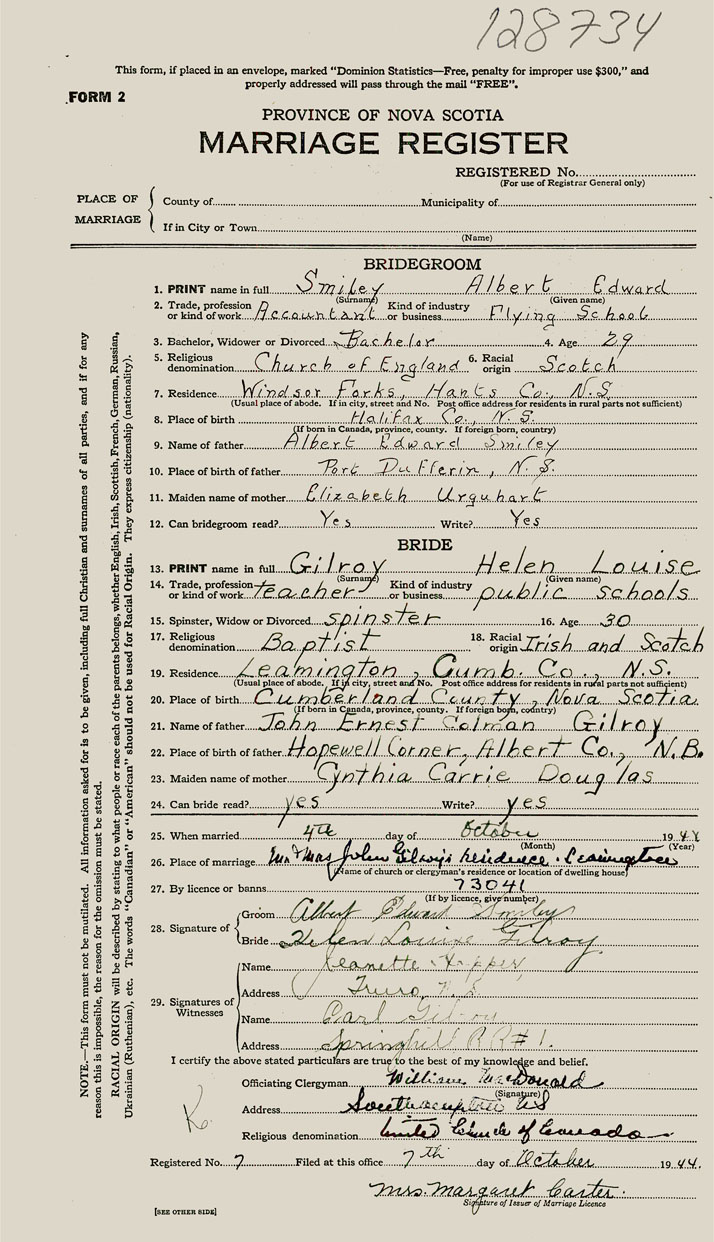 128734
This form, if placed in an envelope, marked "Dominion Statistics—Free, penalty for improper use $300," and
properly addressed will pass through the mail "FREE".
FORM 2
PROVINCE OF NOVA SCOTIA
MARRIAGE REGISTER
REGISTERED No.
(For use of Registrar General only)
PLACE OF MARRIAGE
County of Municipality of
If in City or Town
(Name)
BRIDEGROOM
1. PRINT name in full Smiley Albert Edward
(Surname) (Given name)
2. Trade, profession or kind of work Accountant Kind of industry or business Flying School
3. Bachelor, Widower or Divorced Bachelor 4. Age 29
5. Religious denomination Church of England 6. Racial origin Scotch
7. Residence Windsor Forks, Hants Co., N.S.
(Usual place of abode. If in city, street and No. Post office address for residents in rural parts not sufficient)
8. Place of birth Halifax Co., N.S.
(If born in Canada, province, county. If foreign born, country)
9. Name of father Albert Edward Smiley
10. Place of birth of father Port Dufferin, N.S.
11. Maiden name of mother Elizabeth Urquhart
12. Can bridegroom read? Yes Write? Yes
BRIDE
13. PRINT name in full Gilroy Helen Louise
(Surname) (Given name)
14. Trade, profession or kind of work teacher Kind of industry or business public schools
15. Spinster, Widow or Divorced spinster 16. Age 30
17. Religious denomination Baptist 18. Racial origin Irish and Scotch
19. Residence Leamington, Cumb. Co., N.S.
(Usual place of abode. If in city, street and No. Post office address for residents in rural parts not sufficient)
20. Place of birth Cumberland County, Nova Scotia
(If born in Canada, province, county. If foreign born, country)
21. Name of father John Ernest Colman Gilroy
22. Place of birth of father Hopewell Corner, Albert Co., N.B.
23. Maiden name of mother Cynthia Carrie Douglas
24. Can bride read? yes Write? yes
25. When married 4th day of October 1944
(Month) (Year)
26. Place of marriage Mr & Mrs John Gilroy's residence. Leamington
(Name of church or clergyman's residence or location of dwelling house)
27. By licence or banns 73041
(If by licence, give number)
28. Signature of
Groom Albert Edward Smiley
Bride Helen Louise Gilroy
29. Signatures of Witnesses
Name Jeanette
Address Truro, N.S
Name Carl Gilroy
Address Springhill RR# 1.
I certify the above stated particulars are true to the best of my knowledge and belief.
Officiating Clergyman William MacDonald
(Signature)
Address Southampton NS
Religious denomination United Church of Canada
K
Registered No. 7 Filed at this office 7th day of October 1944.
Mrs. Margaret Carter.
Signature of Issuer of Marriage Licence
[SEE OTHER SIDE]
NOTE.—This form must not be mutilated. All information asked for is to be given, including full Christian and surnames of all parties, and if for any
reason this is impossible, the reason for the omission must be stated.
RACIAL ORIGIN will be described by stating to what people or race each of the parents belongs, whether English, Irish, Scottish, French, German, Russian,
Ukrainian (Ruthenian), etc. The words "Canadian" or "American" should not be used for Racial Origin. They express citizenship (nationality).